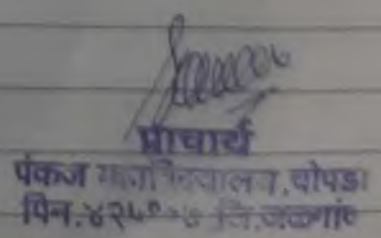 प्राचार्य
पंकज महाविद्यालय, चोपडा
पिन. ४२५१०७ जि. जळगांव